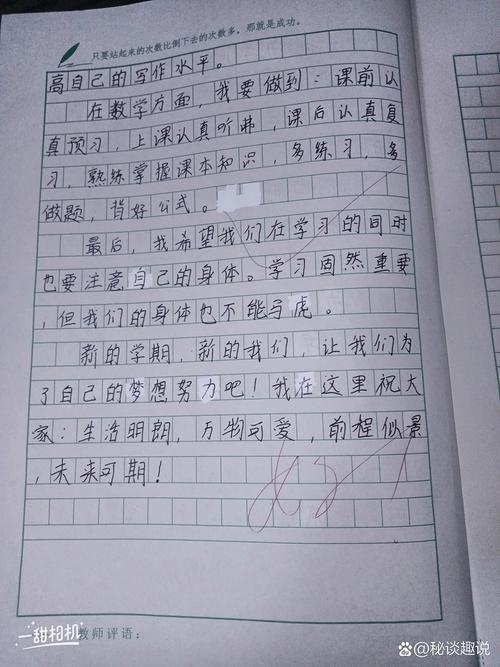 只要站起来的次数比倒下去的次数多，那就是成功。
高自己的写作水平。
在数学方面，我要做到：课前认
真预习，上课认真听讲，课后认真复
习，熟练掌握课本知识，多练习，多
做题，背好公式。
最后，我希望我们在学习的同时
也要注意自己的身体。学习固然重要
，但我们的身体也不能马虎。
新的学期，新的我们，让我们为
了自己的梦想努力吧！我在这里祝大
家：生活明朗，万物可爱，前程似景
，未来可期！
教师评语：
一甜相机
@秘谈趣说